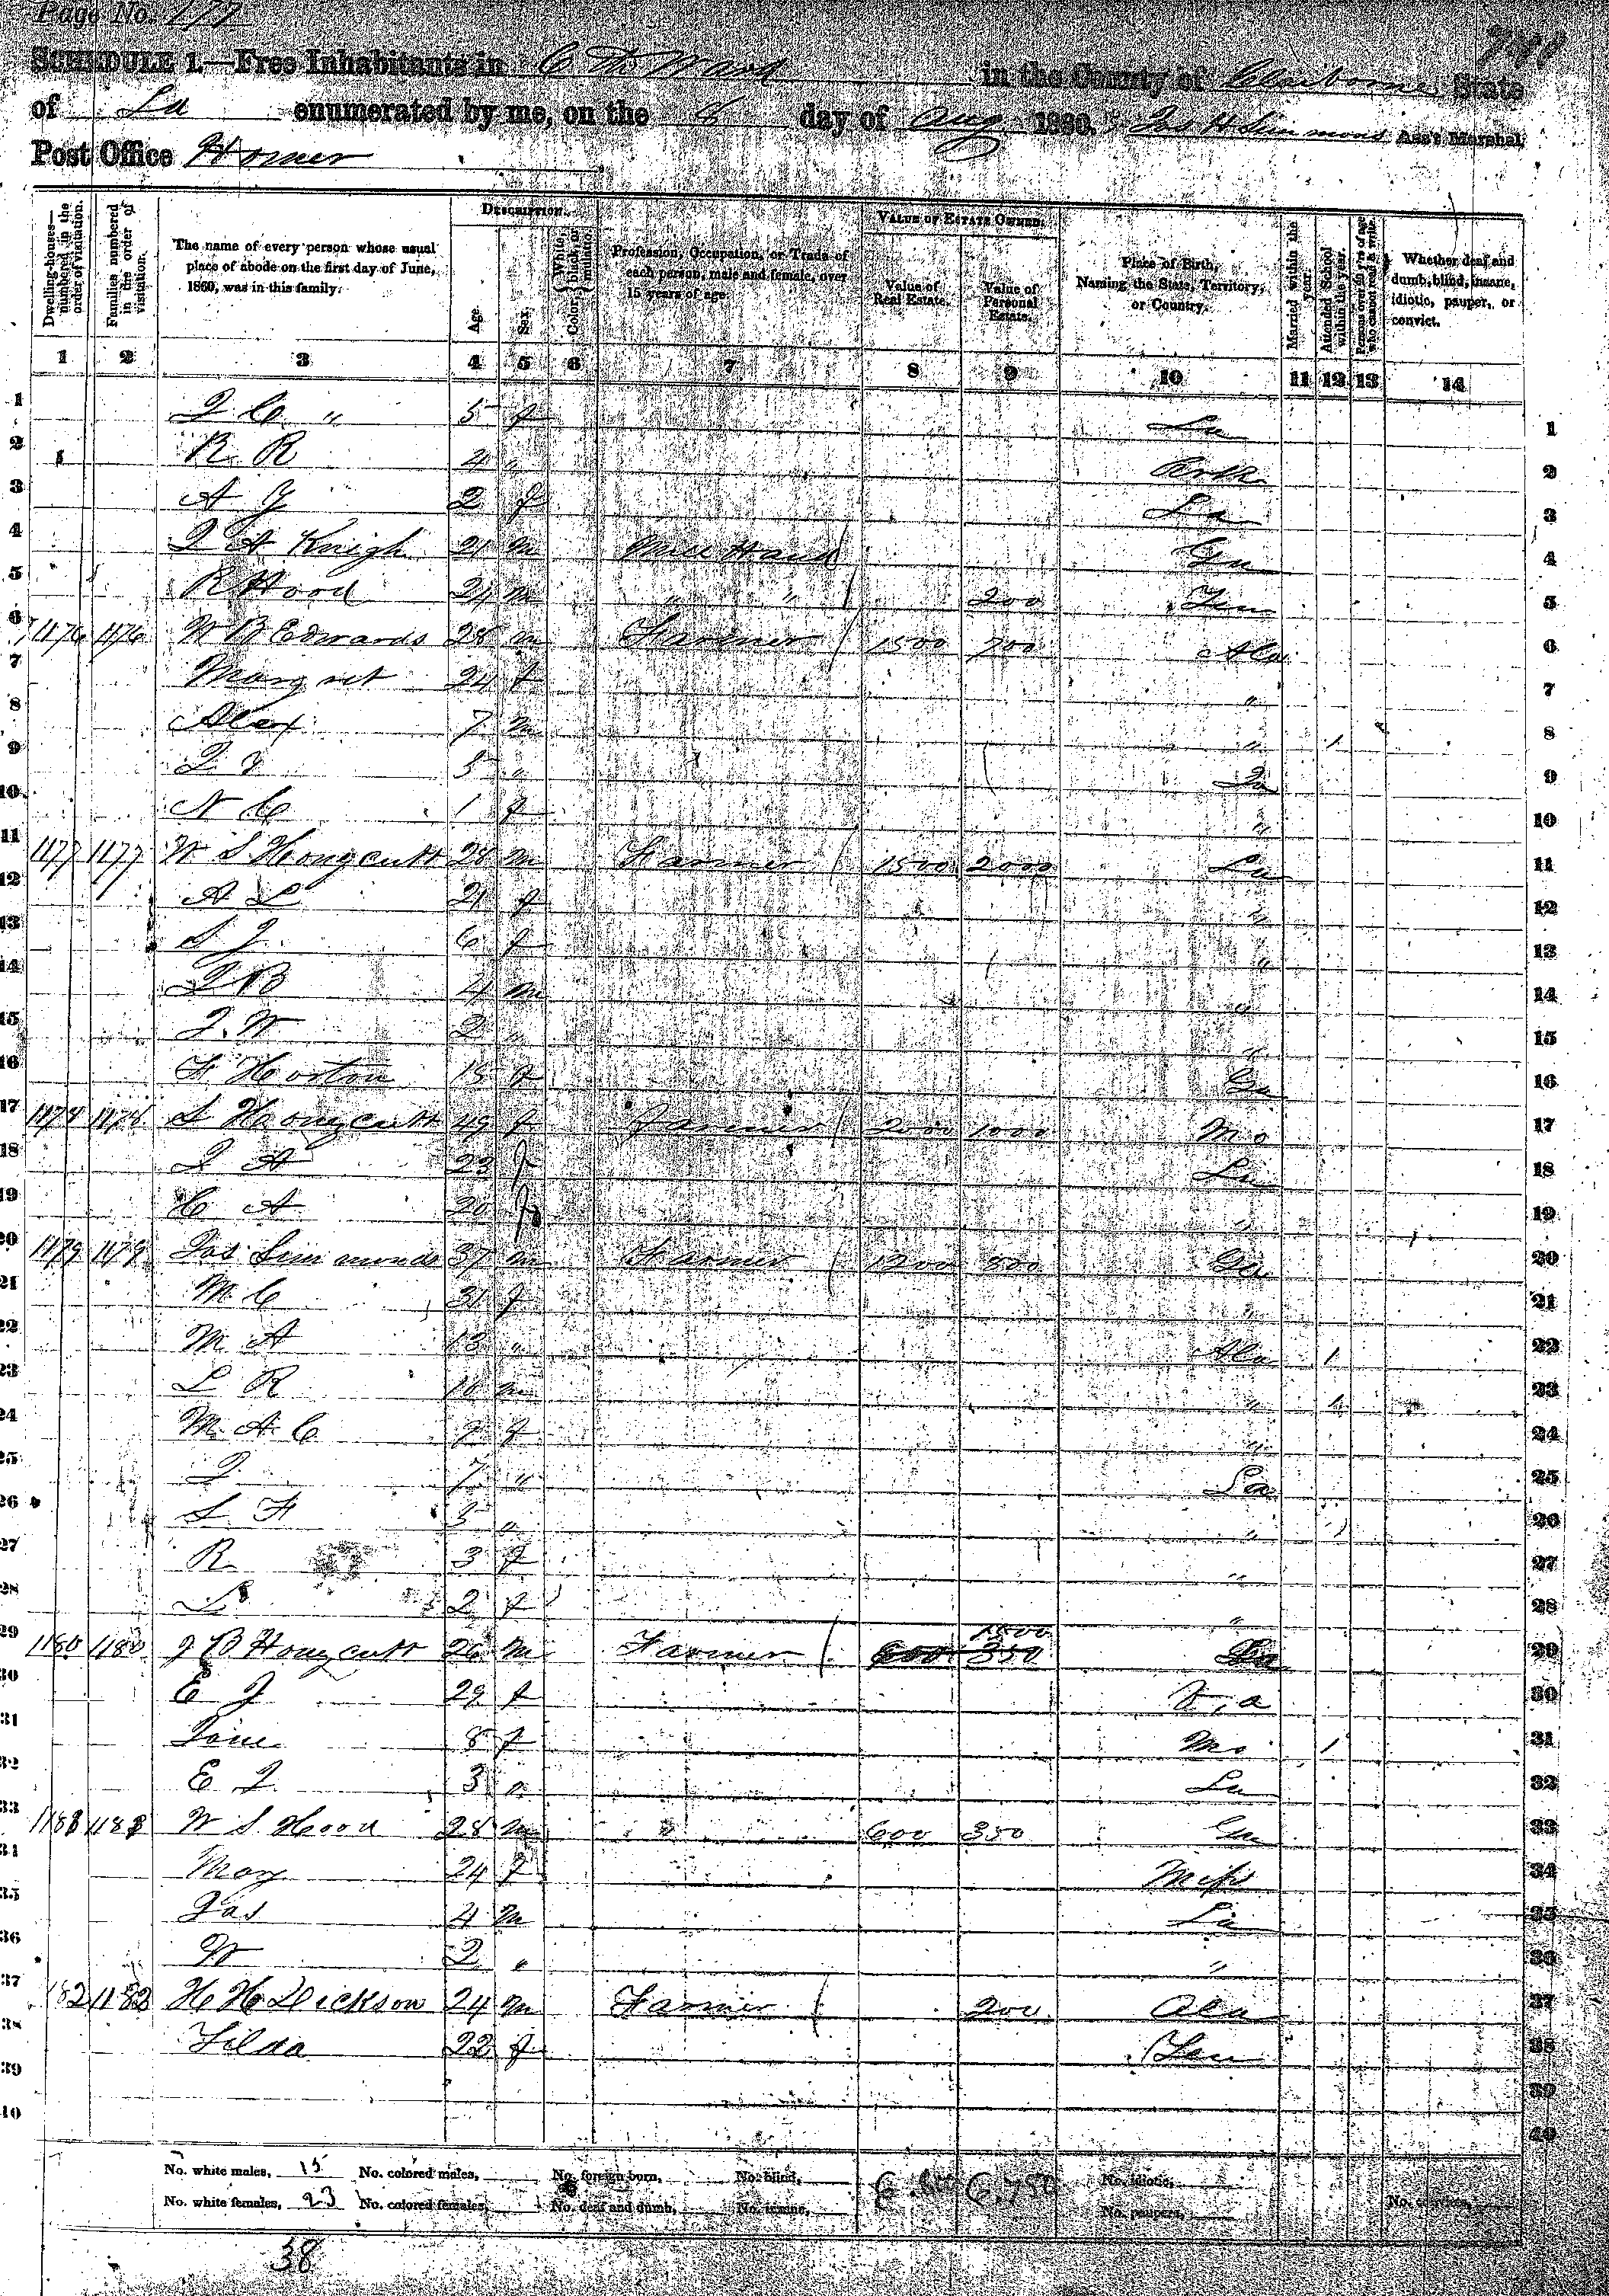 Page No. 177
SCHEDULE 1.—Free Inhabitants in 6 Th Ward in the County of Claiborne State
of La enumerated by me, on the 8 day of Aug 1860. Jas H Simmons Ass't Marshal.
Post Office Homer
Dwelling-houses—numbered in the order of visitation.
Families numbered in the order of visitation.
The name of every person whose usual place of abode on the first day of June, 1860, was in this family.
DESCRIPTION.
Age.
Sex.
Color, {White, black, or mulatto.
Profession, Occupation, or Trade of each person, male and female, over 15 years of age.
VALUE OF ESTATE OWNED.
Value of Real Estate.
Value of Personal Estate.
Place of Birth, Naming the State, Territory, or Country.
Married within the year.
Attended School within the year.
Persons over 20 y'rs of age who cannot read & write.
Whether deaf and dumb, blind, insane, idiotic, pauper, or convict.
1 2 3 4 5 6 7 8 9 10 11 12 13 14
1 J C " 5 f La 1
2 R R 4 " Ark 2
3 A J 2 f La 3
4 J A Knigh 21 m Mill Hand / Ga 4
5 R Hood 24 m " " / 200 Ten 5
6 1176 1176 W B Edwards 28 m Farmer / 1500 700 Ala 6
7 Margret 24 f " 7
8 Alex 7 m " 1 8
9 J J 5 " La 9
10 N C 1 f " 10
11 1177 1177 W S Honycutt 28 m Farmer / 1500 2000 La 11
12 A L 21 f " 12
13 S J 6 f " 13
14 J B 4 m " 14
15 J. W 2 " " 15
16 F Horton 15 f Ga 16
17 1178 1178 S Honycutt 49 f Farmer / 2000 1000 Mo 17
18 J A 23 f La 18
19 C A 20 f " 19
20 1179 1179 Jas Simmonds 37 m Farmer / 1200 800 Ga 20
21 M C 31 f " 21
22 M A 13 " Ala 1 22
23 L R 10 m " 1 23
24 M. A. C 9 f " 24
25 J 7 " La 25
26 S F 5 " " 26
27 R 3 f " 27
28 L 2 f " 28
29 1180 1180 J B Honycutt 26 m Farmer / 600 350 1500 La 29
30 E J 29 f 30
31 8 f Mo 1 31
32 E J 3 " La 32
33 1181 1181 W S Hood 28 m " 600 350 Ga 33
34 Mary 24 f Miss 34
35 Jas 4 m La 35
36 W 2 " " 36
37 1182 1182 H H Dickson 24 m Farmer / 200 Ala 37
38 Tilda 22 f Ten 38
39 39
40 40
No. white males, 15 No. colored males, No. foreign born, No. blind, No. idiotic,
No. white females, 23 No. colored females, No. deaf and dumb, No. insane, No. paupers, No. convicts,
6.750
38